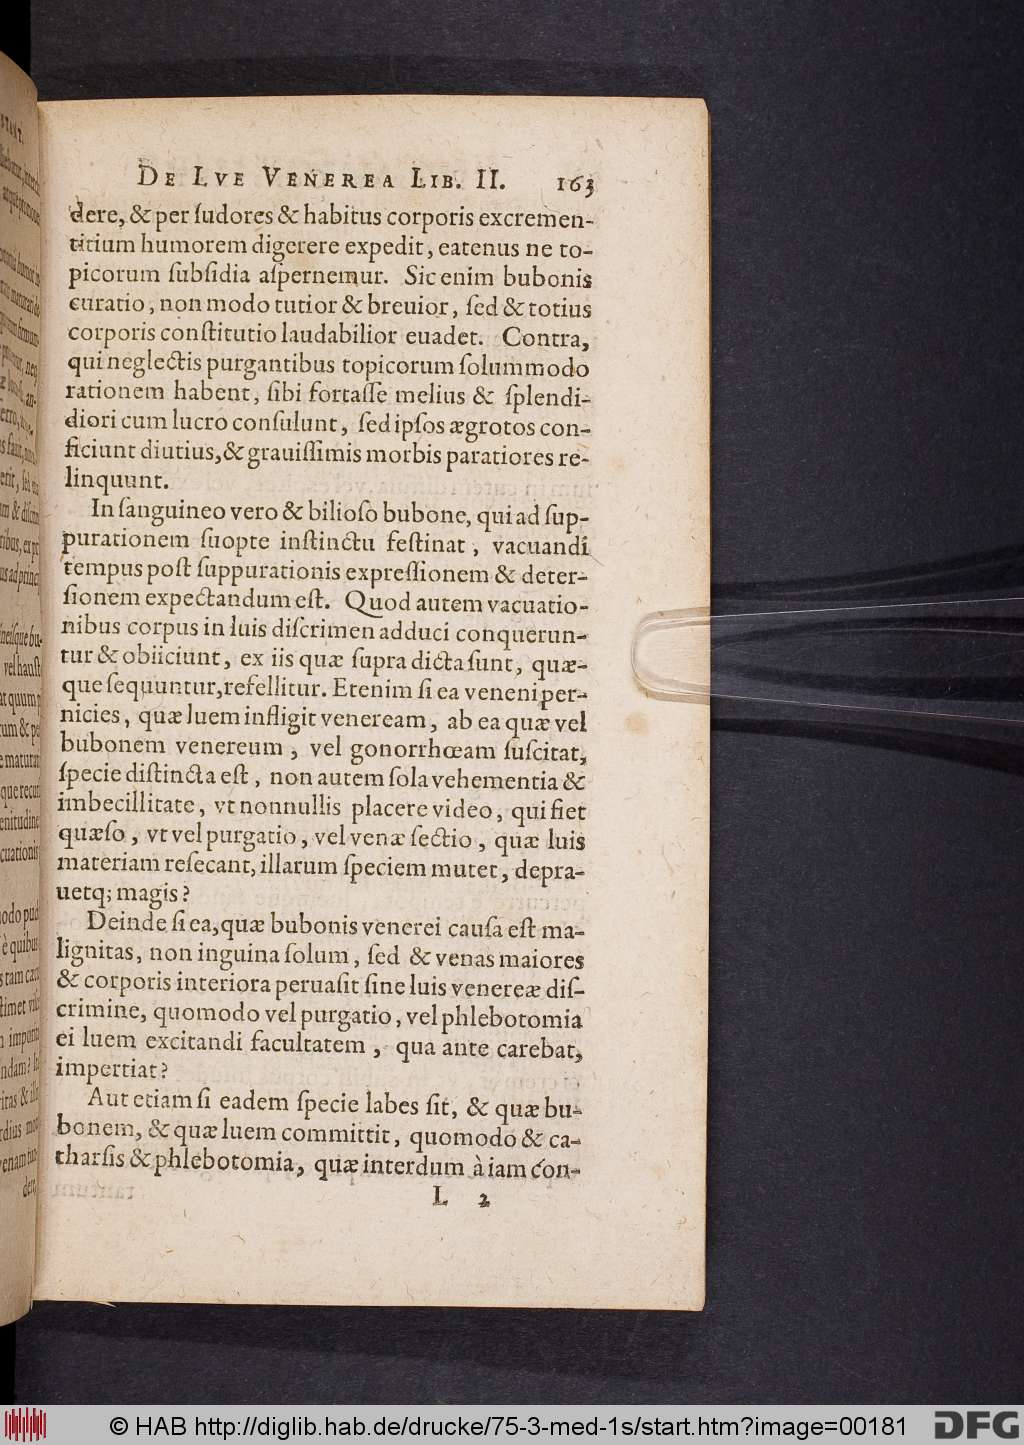 DE LVE VENEREA LIB. II. 163
dere, & per ſudores & habitus corporis excremen-
titium humorem digerere expedit, eatenus ne to-
picorum ſubſidia aſpernemur. Sic enim bubonis
curatio, non modo tutior & breuior, ſed & totius
corporis conſtitutio laudabilior euadet. Contra,
qui neglectis purgantibus topicorum ſolummodo
rationem habent, ſibi fortaſſe melius & ſplendi-
diori cum lucro conſulunt, ſed ipſos ægrotos con-
ficiunt diutius, & grauiſſimis morbis paratiores re-
linquunt.
In ſanguineo vero & bilioſo bubone, qui ad ſup-
purationem ſuopte inſtinctu feſtinat, vacuandi
tempus poſt ſuppurationis expreſſionem & deter-
ſionem expectandum eſt. Quod autem vacuatio-
nibus corpus in luis diſcrimen adduci conquerun-
tur & obiiciunt, ex iis quæ ſupra dicta ſunt, quæ-
que ſequuntur, refellitur. Etenim ſi ea veneni per-
nicies, quæ luem infligit veneream, ab ea quæ vel
bubonem venereum, vel gonorrhœam ſuſcitat,
ſpecie diſtincta eſt, non autem ſola vehementia &
imbecillitate, vt nonnullis placere video, qui fiet
quæſo, vt vel purgatio, vel venæ ſectio, quæ luis
materiam reſecant, illarum ſpeciem mutet, depra-
uetq; magis?
Deinde ſi ea, quæ bubonis venerei cauſa eſt ma-
lignitas, non inguina ſolum, ſed & venas maiores
& corporis interiora peruaſit ſine luis venereæ diſ-
crimine, quomodo vel purgatio, vel phlebotomia
ei luem excitandi facultatem, qua ante carebat,
impertiat?
Aut etiam ſi eadem ſpecie labes ſit, & quæ bu-
bonem, & quæ luem committit, quomodo & ca-
tharſis & phlebotomia, quæ interdum à iam con-
L 2
© HAB http://diglib.hab.de/drucke/75-3-med-1s/start.htm?image=00181
DFG